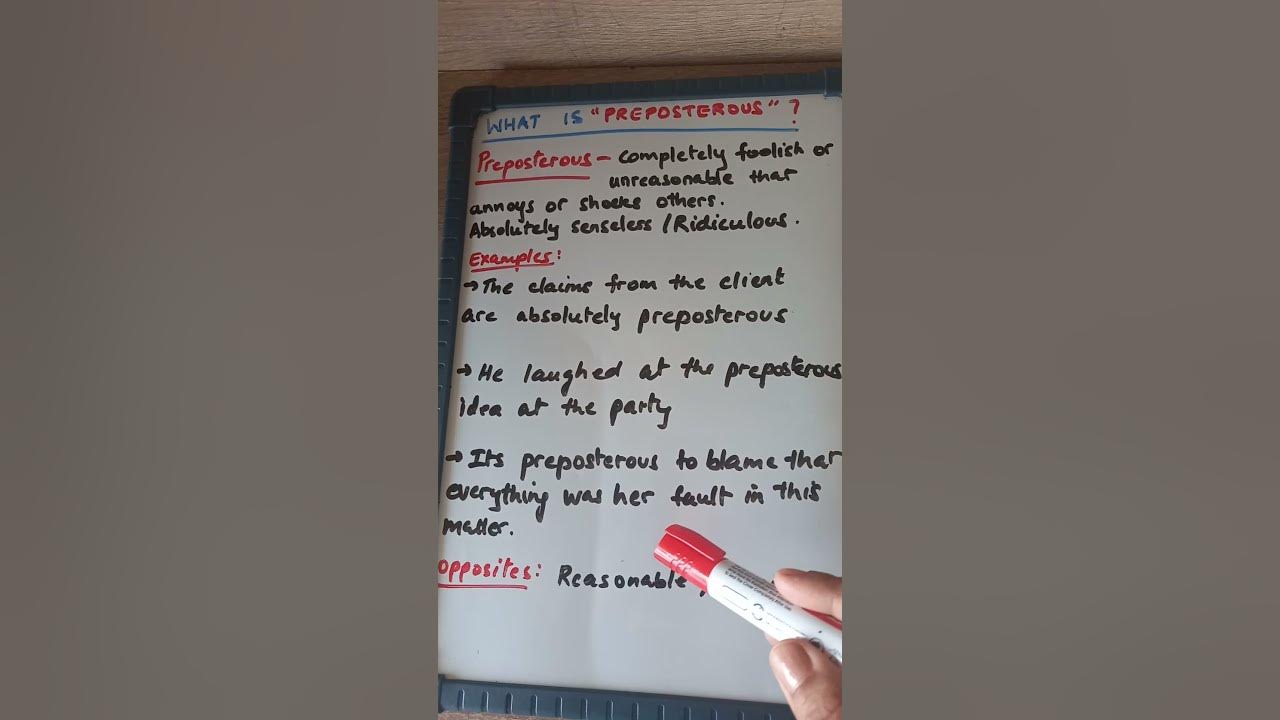 WHAT IS "PREPOSTEROUS"?
Preposterous - completely foolish or
unreasonable that
annoys or shocks others.
Absolutely senseless / Ridiculous.
Examples:
→ The claims from the client
are absolutely preposterous
→ He laughed at the preposterous
idea at the party
→ Its preposterous to blame that
everything was her fault in this
matter.
Opposites: Reasonable,